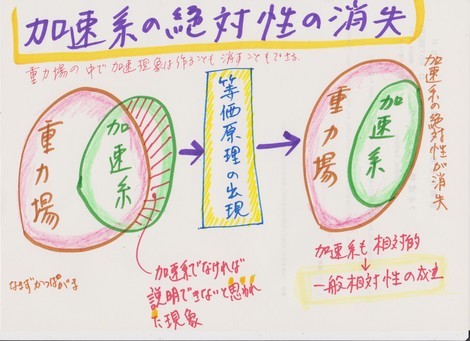 加速系の絶対性の消失
重力場の中で加速現象は作ることも消すこともできる.
重力場
加速系
等価原理の出現
重力場
加速系
加速系の絶対性が消失
加速系でなければ
説明できないと思われ
た現象
加速系も相対的
一般相対性の成立
なまずかっぱがま